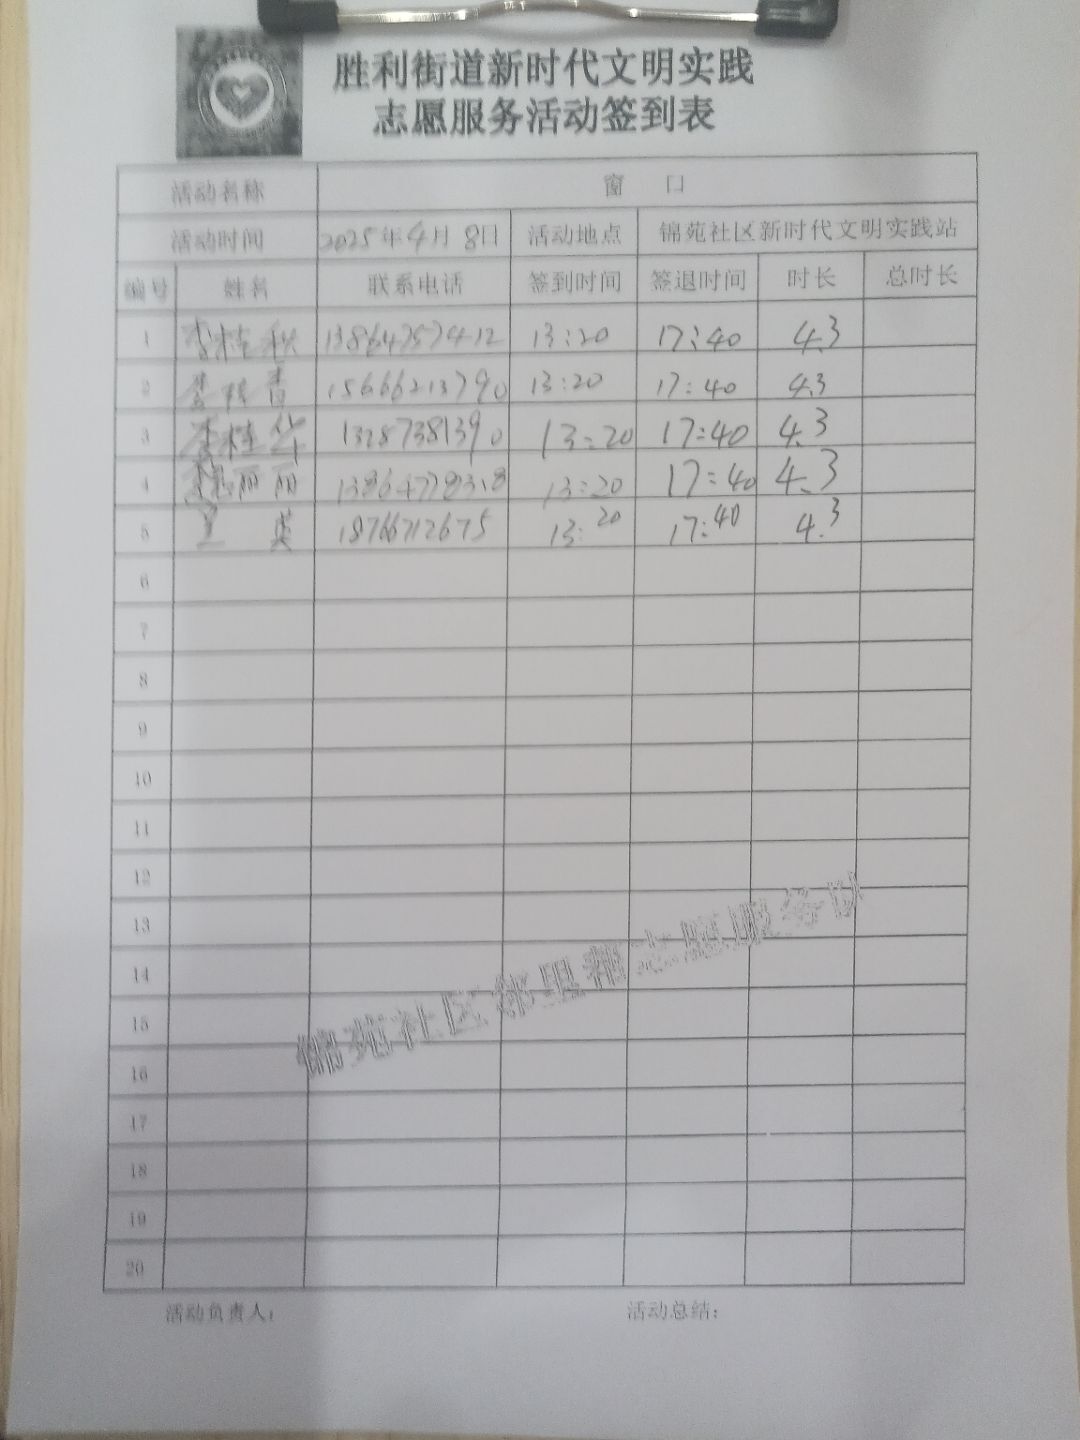 胜利街道新时代文明实践
志愿服务活动签到表
活动名称 窗 口
活动时间 2025年4月8日 活动地点 锦苑社区新时代文明实践站
编号 姓名 联系电话 签到时间 签退时间 时长 总时长
1 李桂秋 13864757412 13:20 17:40 4.3
2 15666213790 13:20 17:40 4.3
3 李桂华 13287381390 13:20 17:40 4.3
4 丽丽 13:20 17:40 4.3
5 英 18766712675 13:20 17:40 4.3
6
7
8
9
10
11
12
13
14
15
16
17
18
19
20
锦苑社区邻里帮志愿服务队
活动负责人: 活动总结: